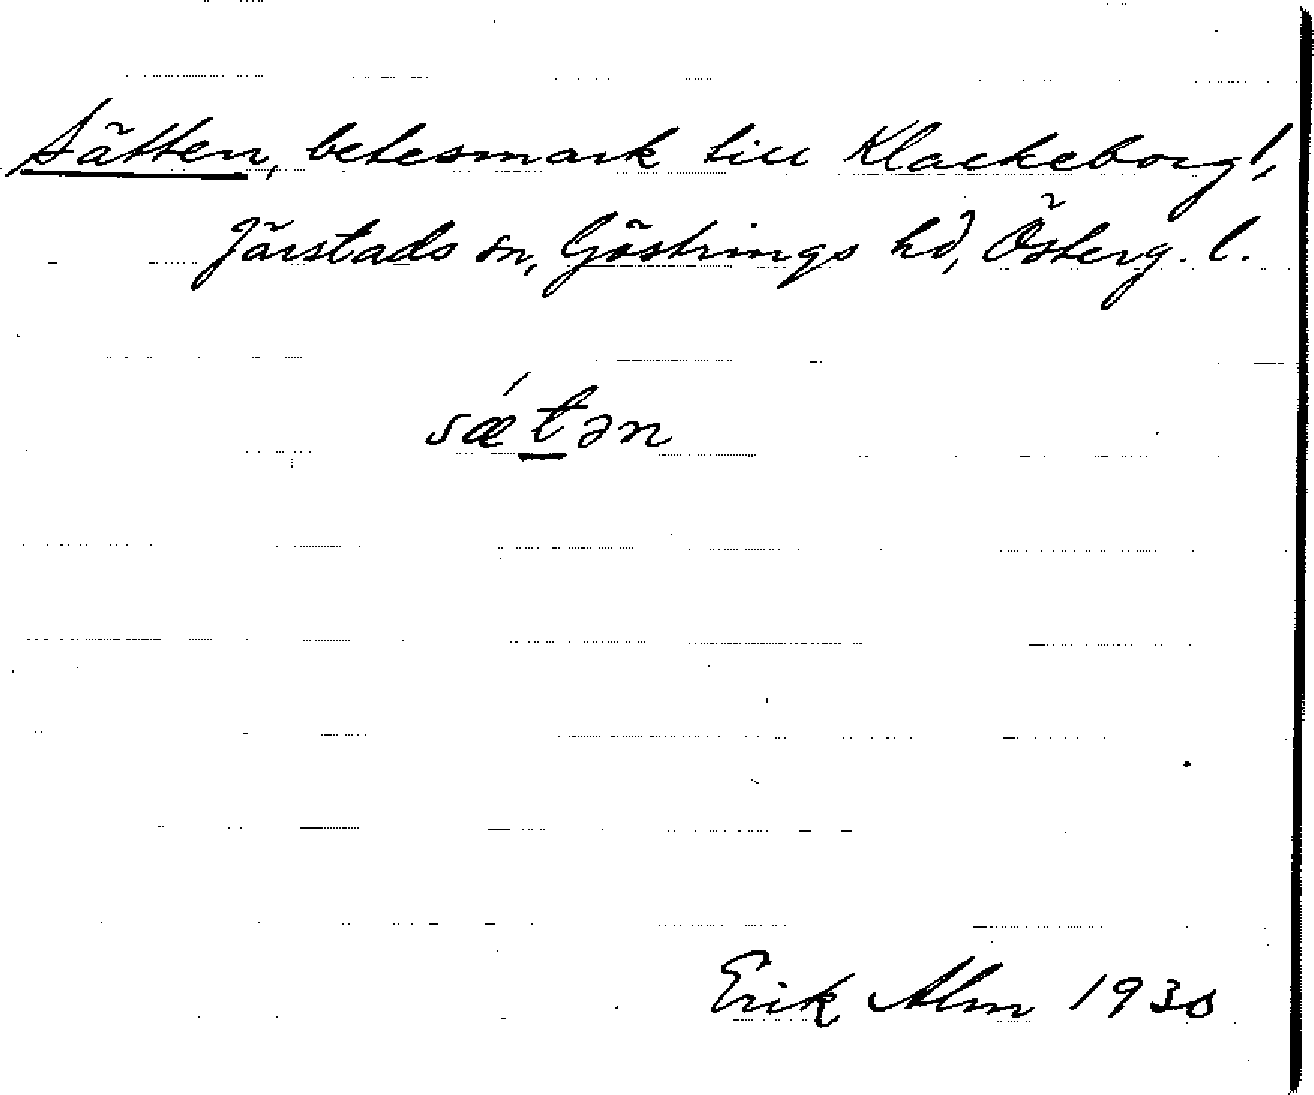 Sätten, betesmark till Klackeborg!,
Järstads sn, Göstrings hd, Österg. l.
sǽtən
Erik Alm 1930